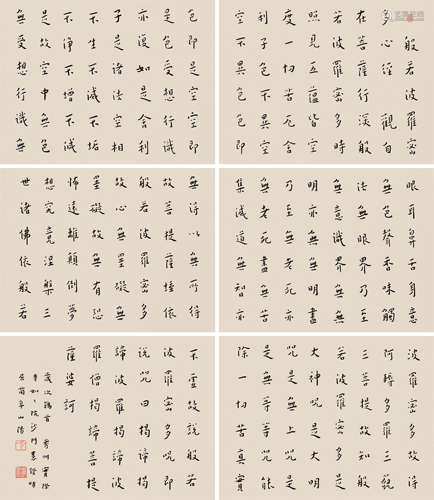 般若波羅蜜
多心經觀自
在菩薩行深般
若波羅蜜多時
照見五蘊皆空
度一切苦厄舍
利子色不異空
空不異色色即
亦復如是舍利
子是諸法空相
不生不滅不垢
不淨不增不減
是故空中無色
無受想行識無
眼耳鼻舌身意
無色聲香味觸
法無眼界乃至
無意識界無無
明亦無無明盡
乃至無老死亦
無老死盡無苦
集滅道無智亦
無得以無所得
故菩提薩埵依
般若波羅蜜多
故心無罣礙無
罣礙故無有恐
怖遠離顛倒夢
想究竟涅槃三
世諸佛依般若
波羅蜜多故得
阿耨多羅三藐
三菩提故知般
若波羅蜜多是
大神咒是大明
咒是無上咒是
無等等咒能
除一切苦真實
不虛故說般若
波羅蜜多咒即
說咒曰揭諦揭
諦波羅揭諦波
羅僧揭諦菩提
薩婆訶